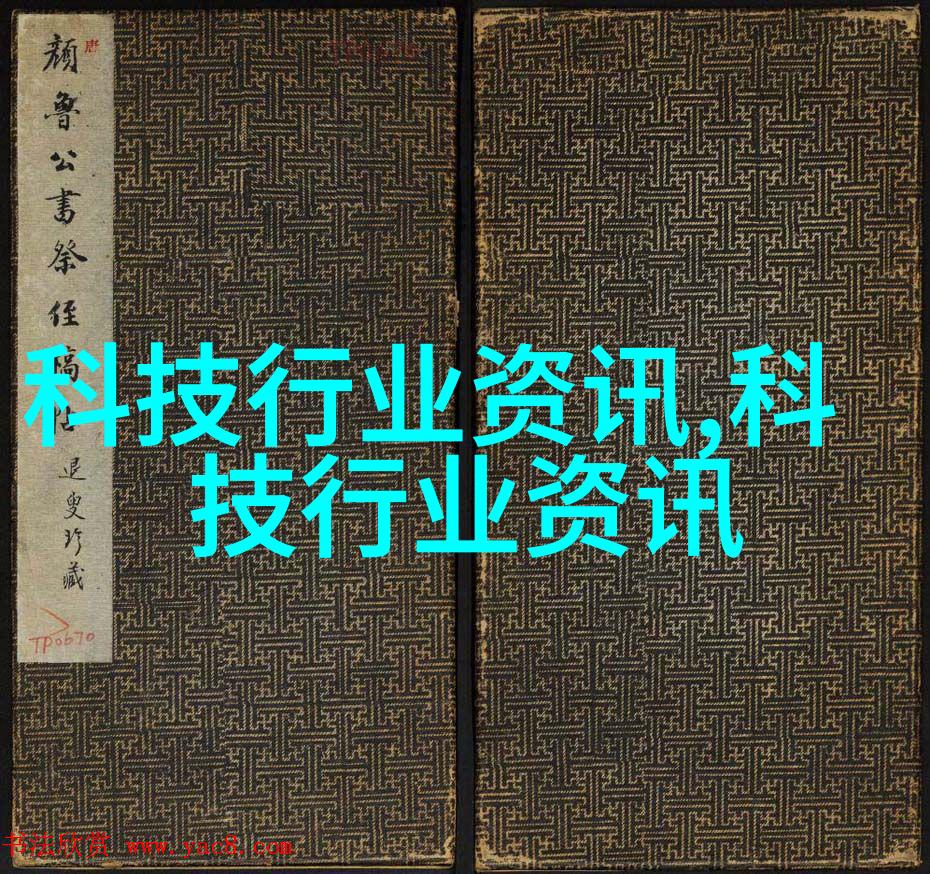 唐
颜鲁公书祭侄稿
退叟珍藏
TP0670
科技行业资讯,科
技行业资讯
书法欣赏 www.yac8.com